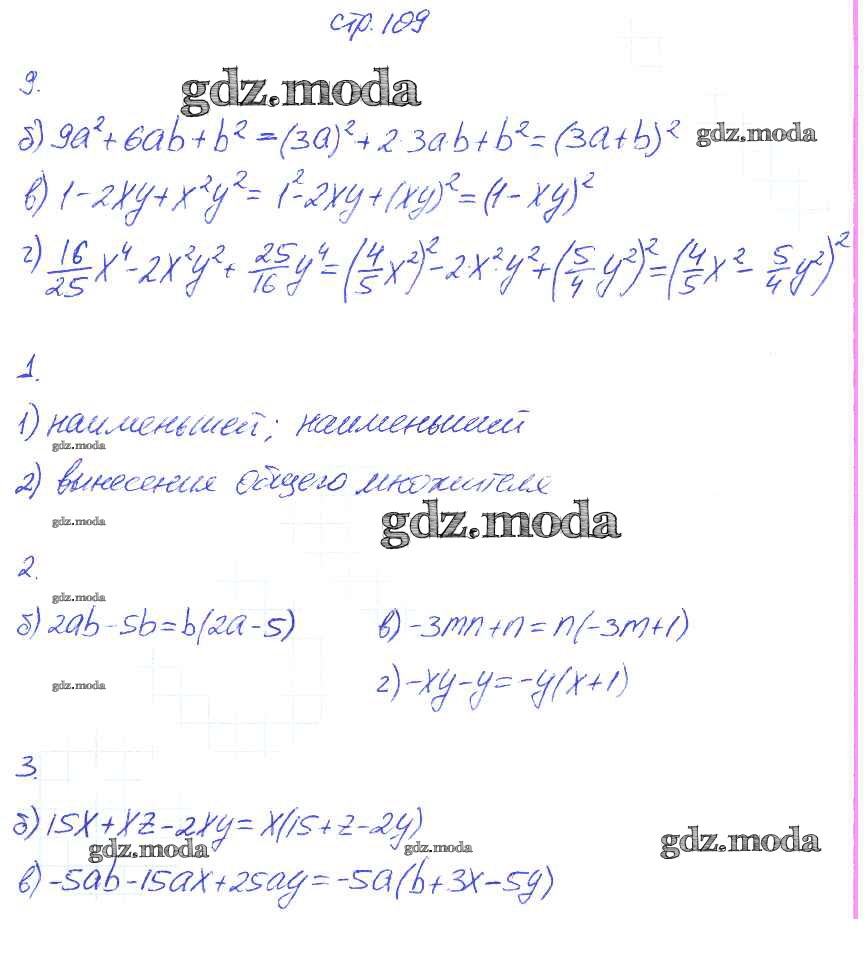 стр. 109
9.
gdz.moda
б) 9a² + 6ab + b² = (3a)² + 2·3a·b + b² = (3a + b)² gdz.moda
в) 1 - 2xy + x²y² = 1² - 2xy + (xy)² = (1 - xy)²
г) 16/25 x⁴ - 2x²y² + 25/16 y⁴ = (4/5 x²)² - 2·x²·y² + (5/4 y²)² = (4/5 x² - 5/4 y²)²
1.
1) наименьшей; наименьший
gdz.moda
2) вынесения общего множителя
gdz.moda
gdz.moda
2.
gdz.moda
б) 2ab - 5b = b(2a - 5) в) -3mn + n = n(-3m + 1)
gdz.moda г) -xy - y = -y(x + 1)
3.
б) 15x + xz - 2xy = x(15 + z - 2y)
gdz.moda gdz.moda gdz.moda
в) -5ab - 15ax + 25ay = -5a(b + 3x - 5y)